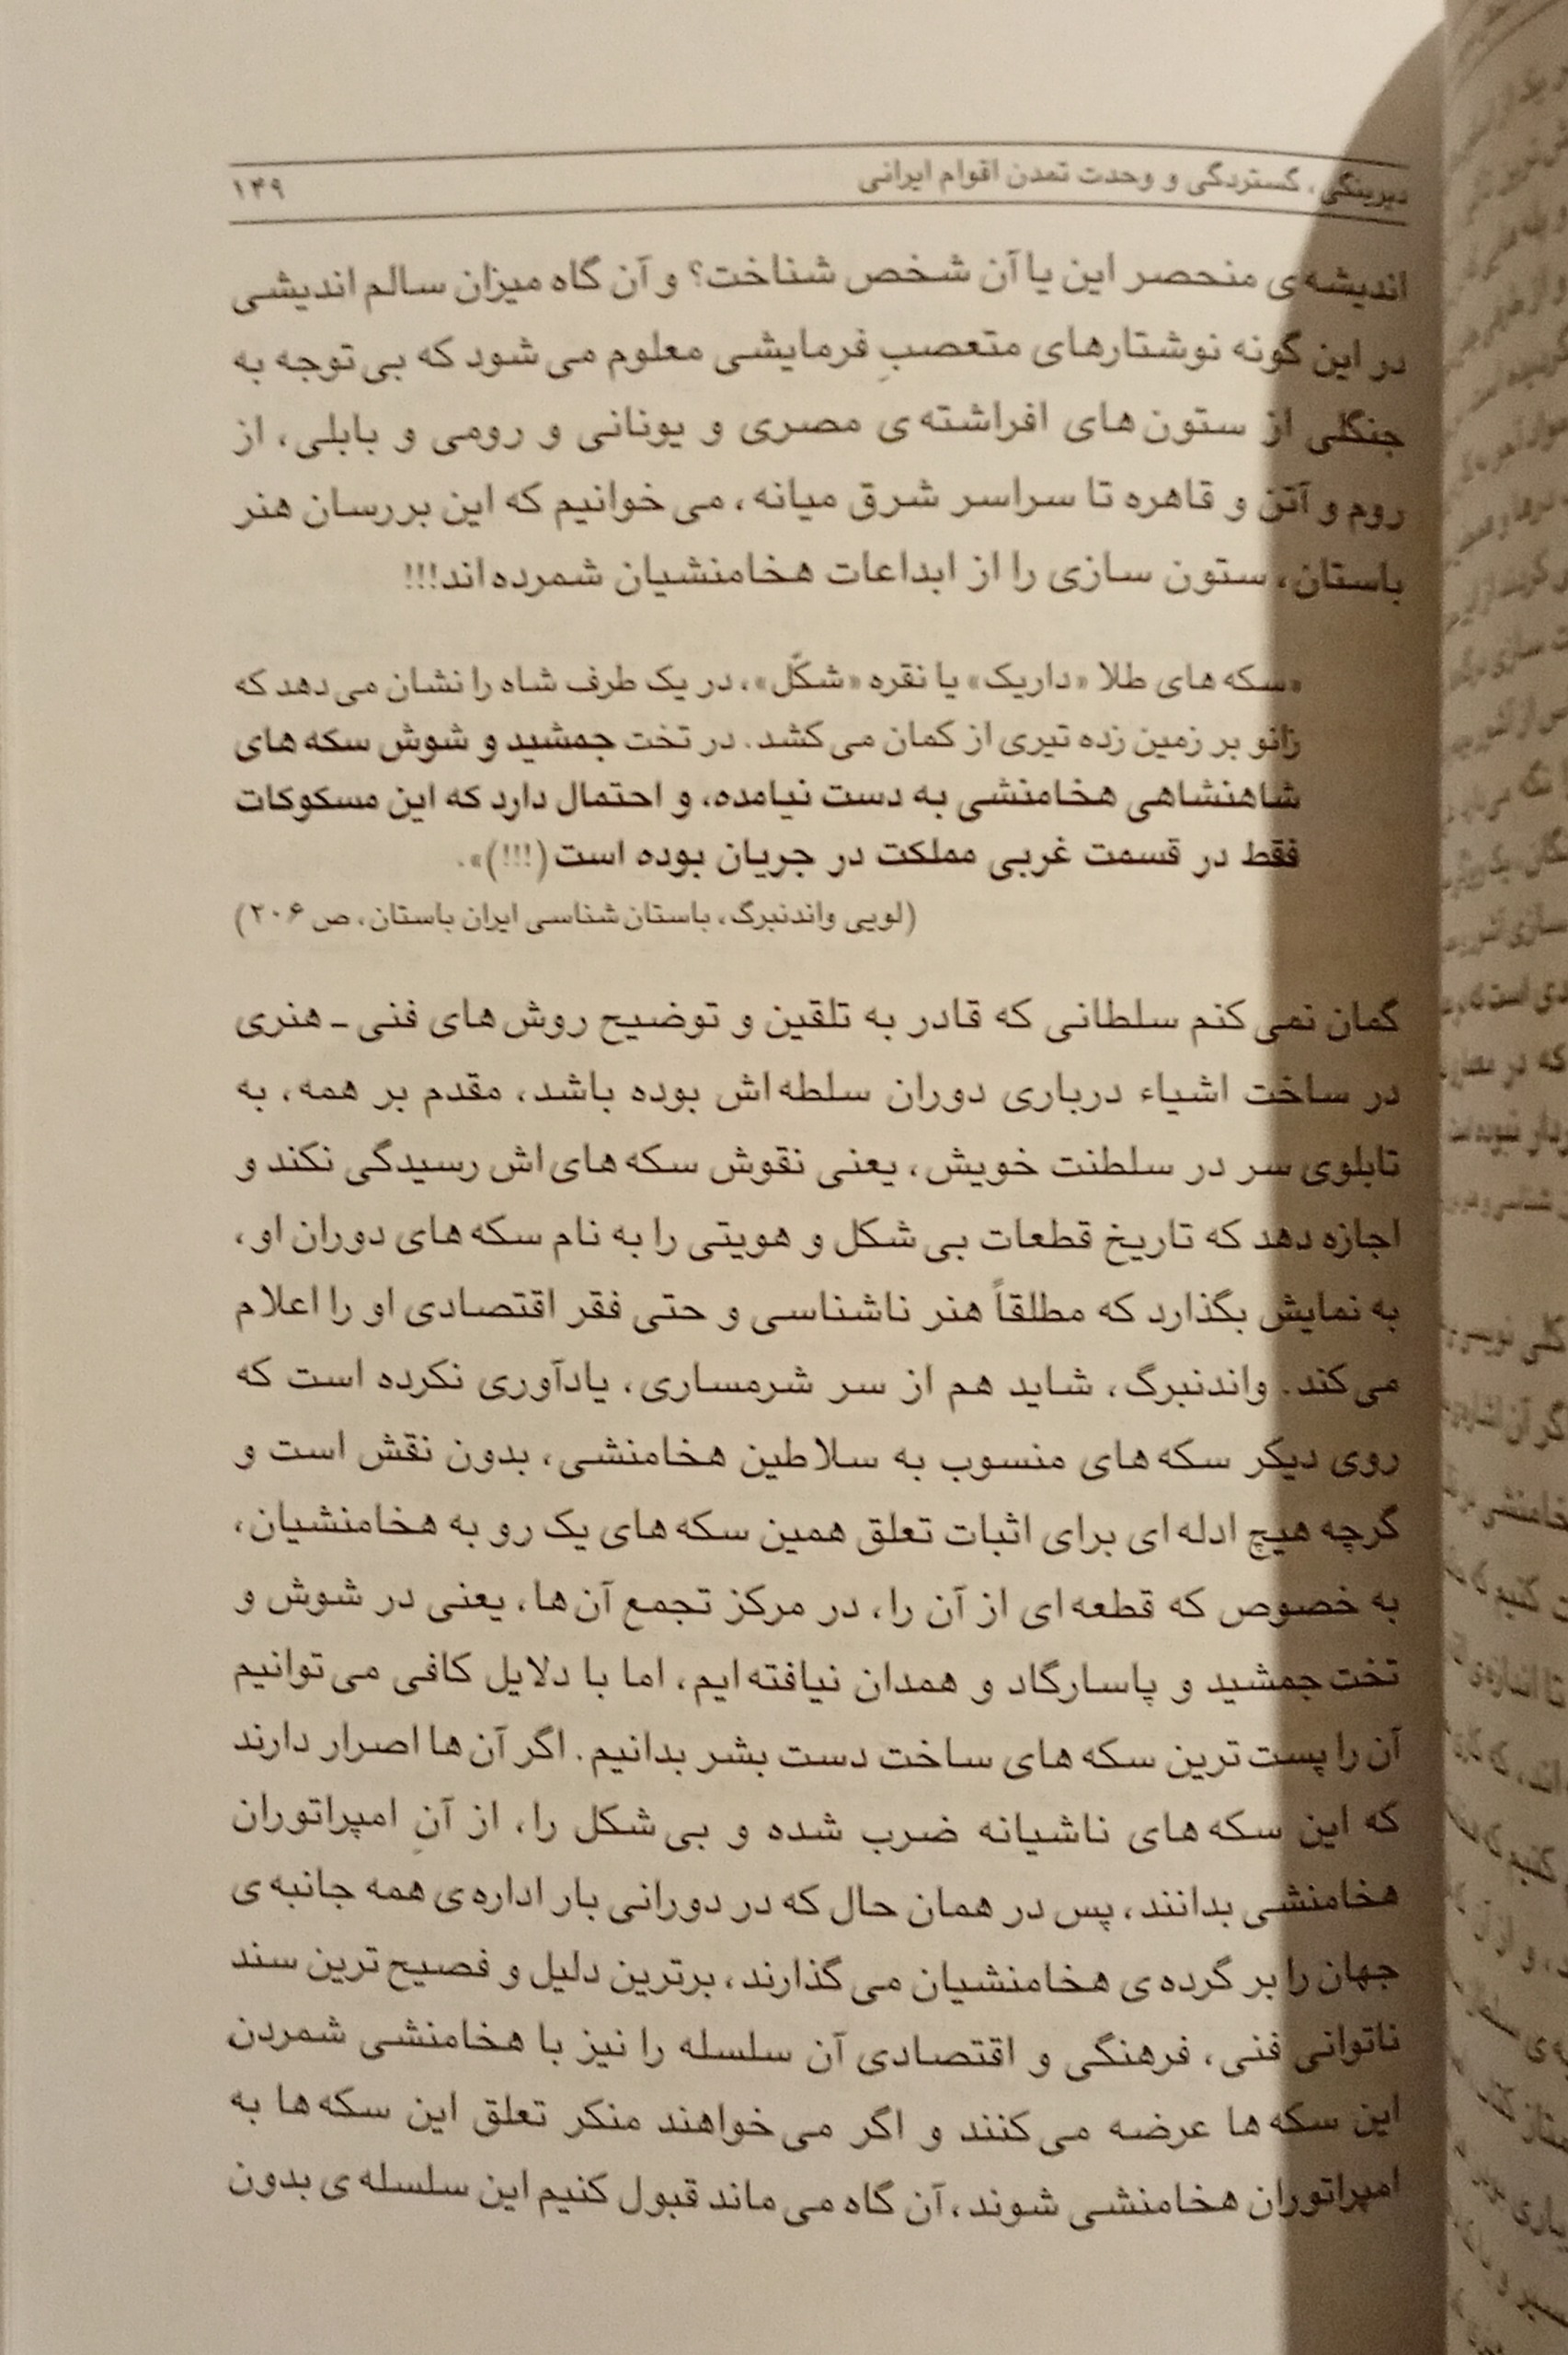 دیرینگی، گستردگی و وحدت تمدن اقوام ایرانی
۱۴۹
اندیشه‌ی منحصر این یا آن شخص شناخت؟ و آن گاه میزان سالم اندیشی
در این گونه نوشتارهای متعصبِ فرمایشی معلوم می‌شود که بی‌توجه به
جنگلی از ستون‌های افراشته‌ی مصری و یونانی و رومی و بابلی، از
روم و آتن و قاهره تا سراسر شرق میانه، می‌خوانیم که این بررسان هنر
باستان، ستون سازی را از ابداعات هخامنشیان شمرده‌اند!!!
«سکه‌های طلا «داریک» یا نقره «شکّل»، در یک طرف شاه را نشان می‌دهد که
زانو بر زمین زده تیری از کمان می‌کشد. در تخت جمشید و شوش سکه‌های
شاهنشاهی هخامنشی به دست نیامده، و احتمال دارد که این مسکوکات
فقط در قسمت غربی مملکت در جریان بوده است (!!!)».
(لویی واندنبرگ، باستان‌شناسی ایران باستان، ص ۲۰۶)
گمان نمی‌کنم سلطانی که قادر به تلقین و توضیح روش‌های فنی ـ هنری
در ساخت اشیاء درباری دوران سلطه‌اش بوده باشد، مقدم بر همه، به
تابلوی سر در سلطنت خویش، یعنی نقوش سکه‌های‌اش رسیدگی نکند و
اجازه دهد که تاریخ قطعات بی‌شکل و هویتی را به نام سکه‌های دوران او،
به نمایش بگذارد که مطلقاً هنر ناشناسی و حتی فقر اقتصادی او را اعلام
می‌کند. واندنبرگ، شاید هم از سر شرمساری، یادآوری نکرده است که
روی دیگر سکه‌های منسوب به سلاطین هخامنشی، بدون نقش است و
گرچه هیچ ادله‌ای برای اثبات تعلق همین سکه‌های یک رو به هخامنشیان،
به خصوص که قطعه‌ای از آن را، در مرکز تجمع آن‌ها، یعنی در شوش و
تخت جمشید و پاسارگاد و همدان نیافته‌ایم، اما با دلایل کافی می‌توانیم
آن را پست‌ترین سکه‌های ساخت دست بشر بدانیم. اگر آن‌ها اصرار دارند
که این سکه‌های ناشیانه ضرب شده و بی‌شکل را، از آنِ امپراتوران
هخامنشی بدانند، پس در همان حال که در دورانی بار اداره‌ی همه جانبه‌ی
جهان را بر گرده‌ی هخامنشیان می‌گذارند، برترین دلیل و فصیح‌ترین سند
ناتوانی فنی، فرهنگی و اقتصادی آن سلسله را نیز با هخامنشی شمردن
این سکه‌ها عرضه می‌کنند و اگر می‌خواهند منکر تعلق این سکه‌ها به
امپراتوران هخامنشی شوند، آن گاه می‌ماند قبول کنیم این سلسله‌ی بدون